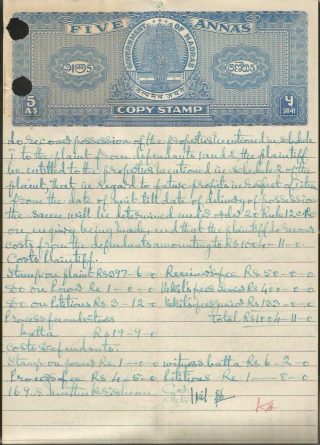 FIVE ANNAS
GOVERNMENT OF MADRAS
सत्यमेव जयते
5 As
५ आना
COPY STAMP
do recover possession of the properties mentioned in schedule
I to the plaint from defendants 1 and 2 the plaintiff
be entitled to the properties mentioned in schedule 2 of the
plaint that in regard to future profits in respect of item
from the date of suit till date of delivery of possession
the same will be determined under order 20 Rule 12 C.P.C.
on enquiry being made, and that the plaintiff do recover
costs from the defendants amounting to Rs 1004-11-0.
Costs Plaintiff.
Stamp on plaint Rs 397-6-0 Receivers fee Rs 50-0-0
Do on Power Re 1-0-0 Vakils fees senior Rs 400-0-0
Do on Petitions Rs 3-12-0 Vakils fees junior Rs 133-0-0
Process fee and witness Total Rs 1004-11-0
batta Rs 19-9-0
Costs defendants.
Stamp on power Re 1-0-0 witness batta Rs 6-2-0
Process fee Rs 4-5-0 Petitions Re. 1-8-0